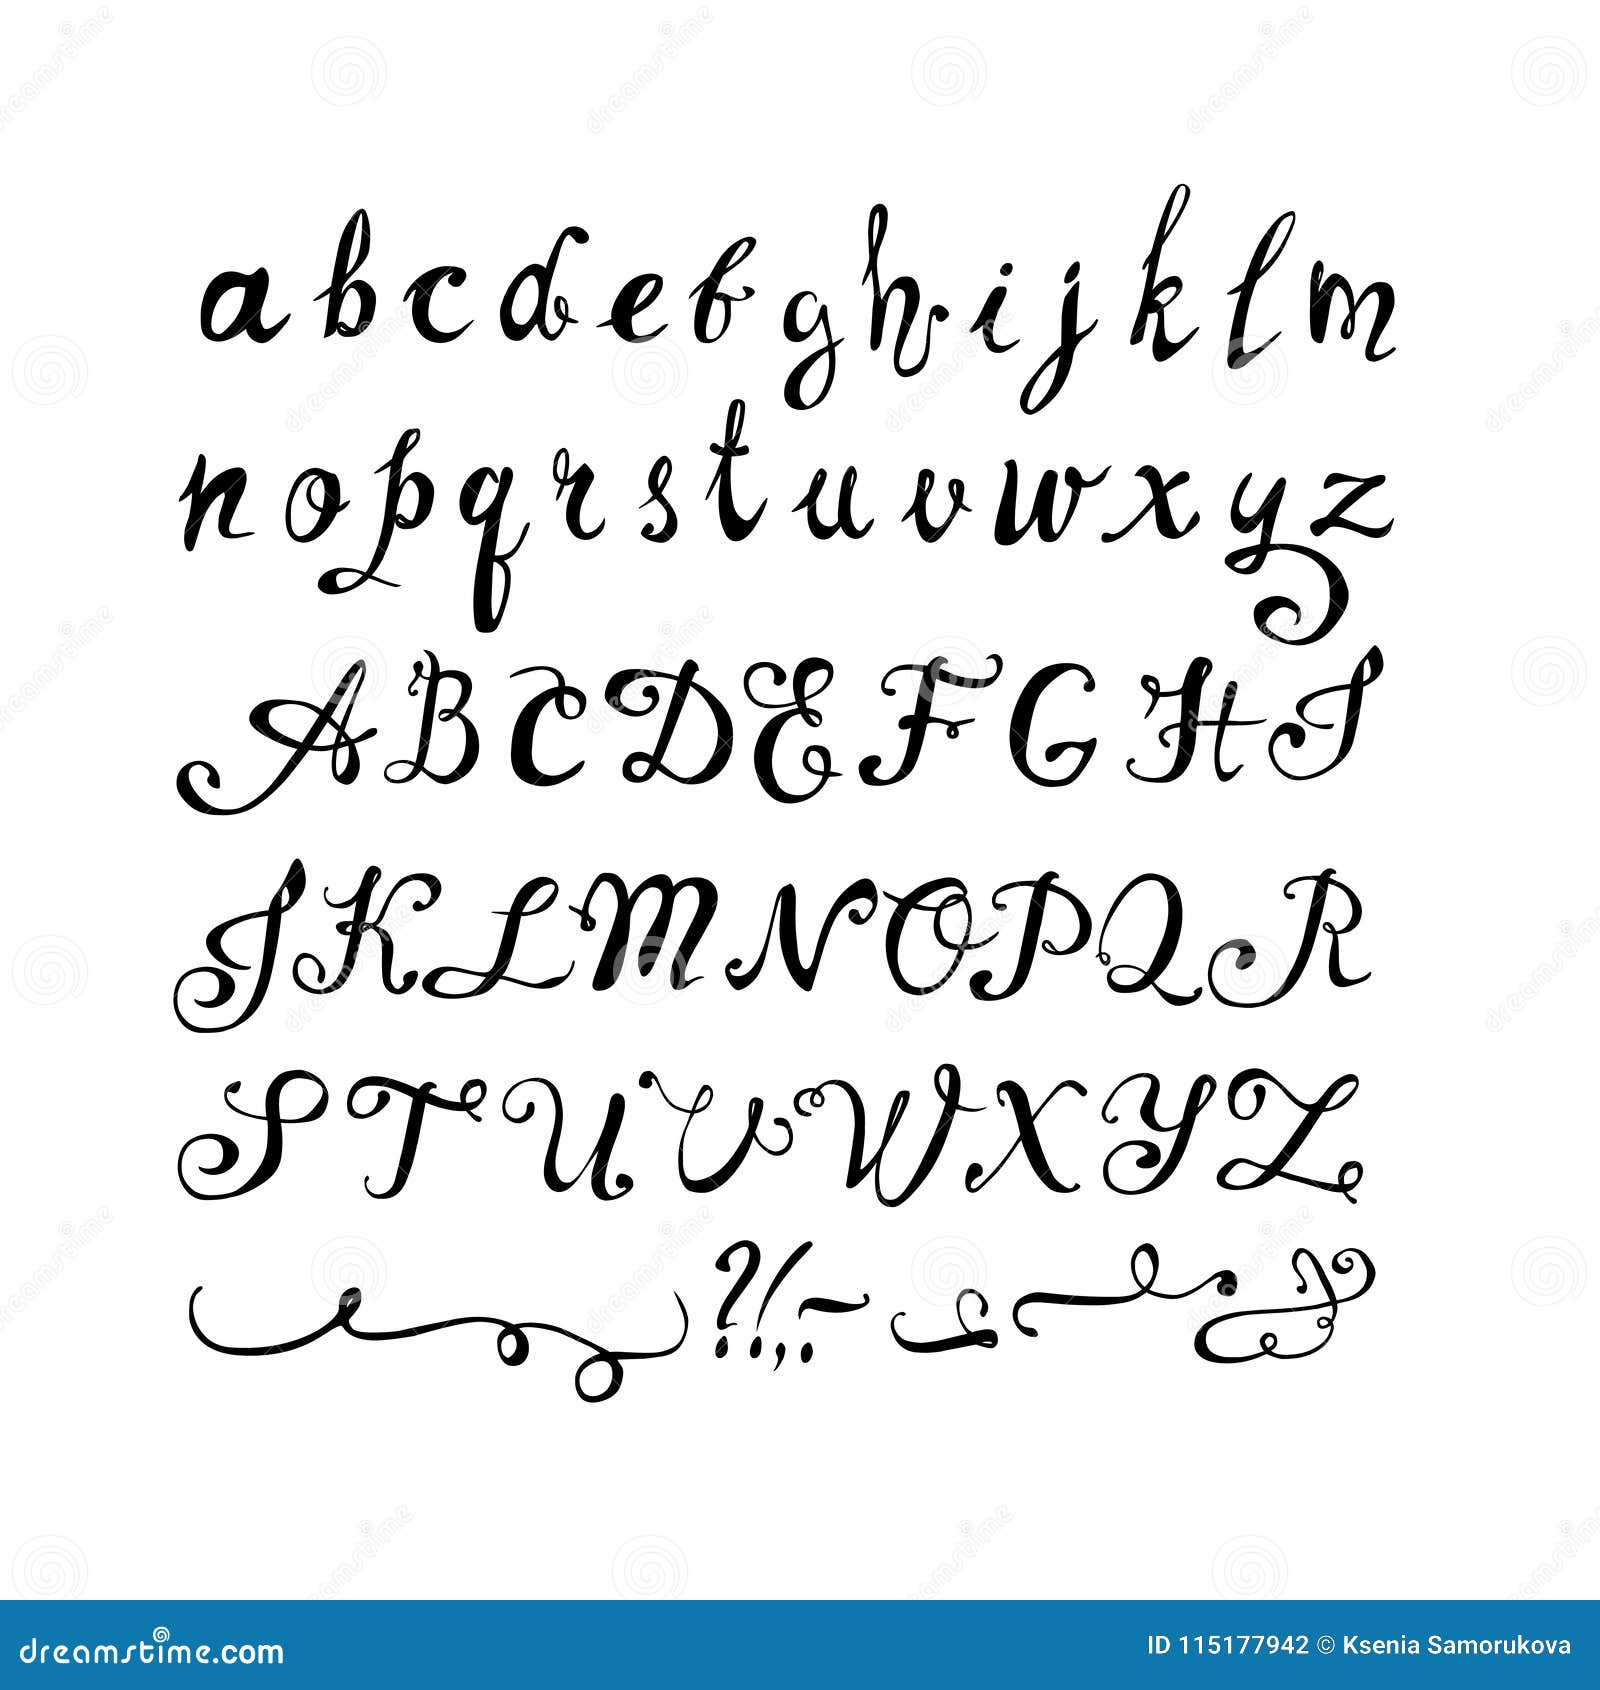 abcdefghijklm
nopqrstuvwxyz
ABCDEFGHI
JKLMNOPQR
STUVWXYZ
?!,.-
dreamstime.com
ID 115177942 © Ksenia Samorukova